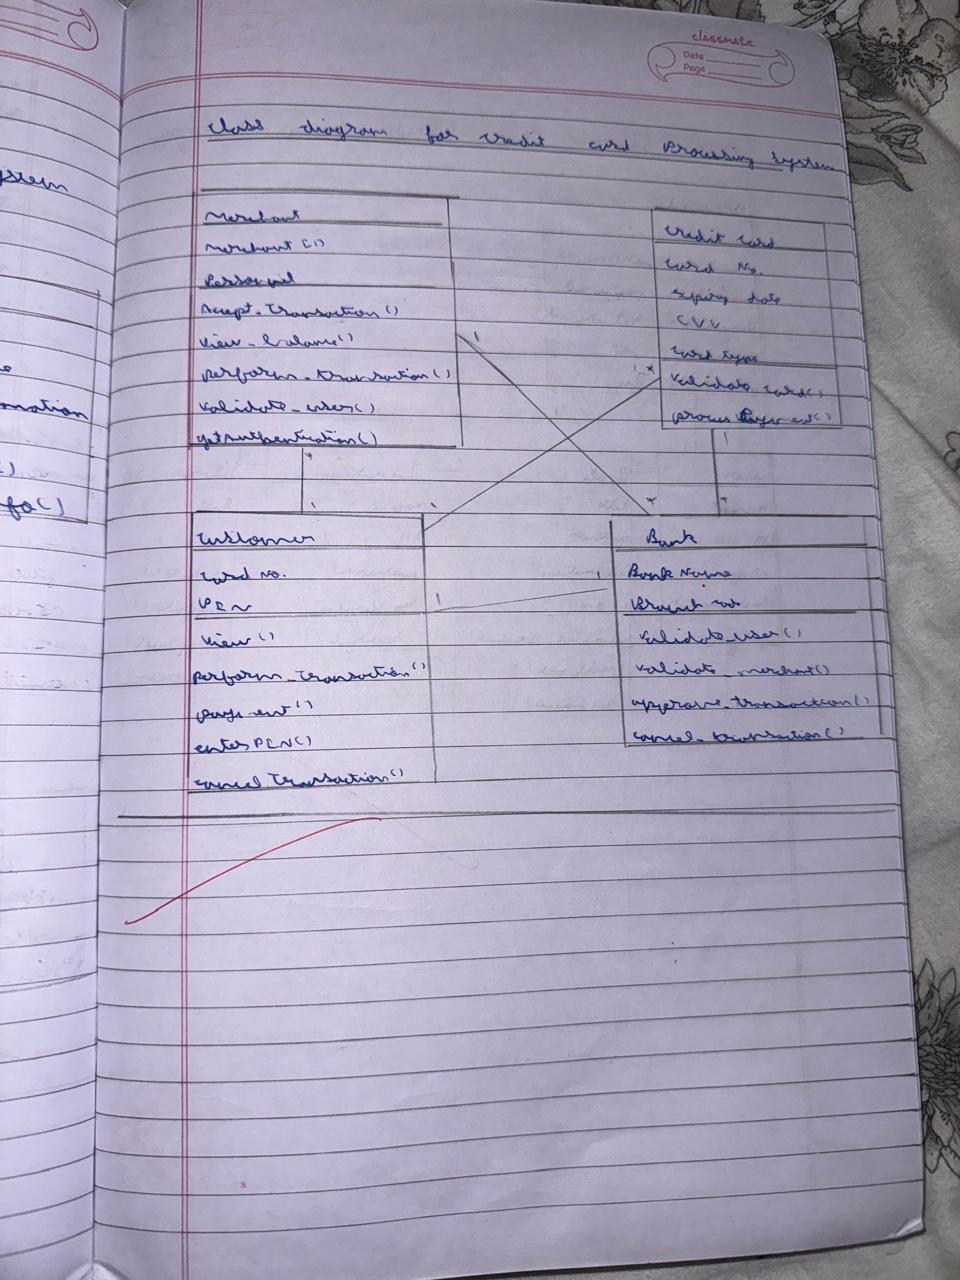 classmate
Date
Page
Class diagram for credit card processing system
Merchant
Merchant
Personnel
Accept_Transaction()
View_Balance()
perform_transaction()
validate_user()
getAuthentication()
Credit Card
Card No.
expiry date
CVV
Card type
Validate card()
process Payment()
1
1
*
1
*
*
1
1
*
*
Customer
Card No.
PIN
View()
perform_Transaction()
payment()
enter PIN()
cancel Transaction()
1
1
Bank
Bank Name
Branch code
validate_user()
validate_merchant()
approve_transaction()
cancel_transaction()
ystem
mation
()
fo()